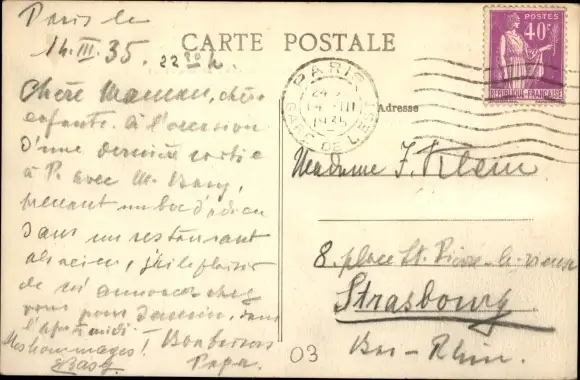 Paris le
14.III.35. 22 30 h.
CARTE POSTALE
Chère Maman, chers
enfants. à l'occasion
d'une dernière sortie
à P. avec M.
prenant un boc d'adieu
dans un restaurant
alsacien, j'ai le plaisir
de m'annoncer chez
vous pour demain, dans
l'après midi.
Mes hommages! Bons baisers
Papa.
POSTES
40c
REPUBLIQUE FRANÇAISE
PARIS
24
14 III
1935
GARE DE L'EST
Adresse
Madame J. Klein
8. place St. Pierre-le-vieux
Strasbourg
Bas-Rhin.
03